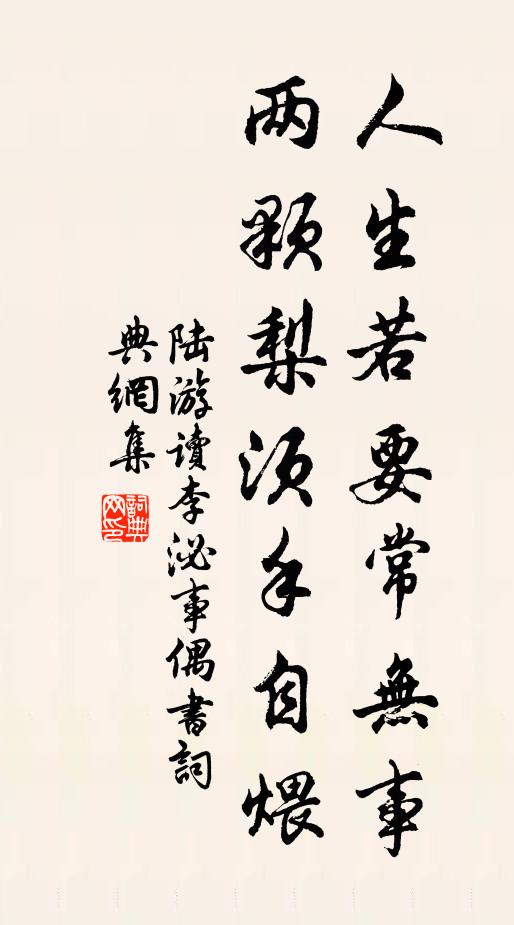 人生若要常無事
两顆梨須手自煨
陸游讀李泌事偶書詞
典網集
詞典網印